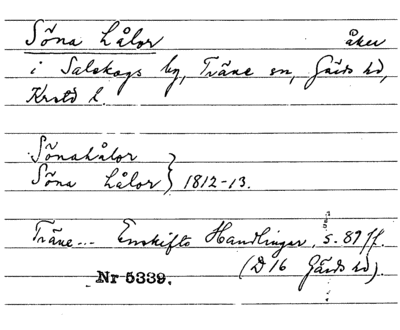 Söna hålor åker
i Salskogs by, Träne sn, Gärds hd,
Krstd l.
Sönahålor
Söna hålor } 1812-13.
Träne... Enskifts Handlingar, s. 89 ff.
(D 16 Gärds hd).
Nr 5339.